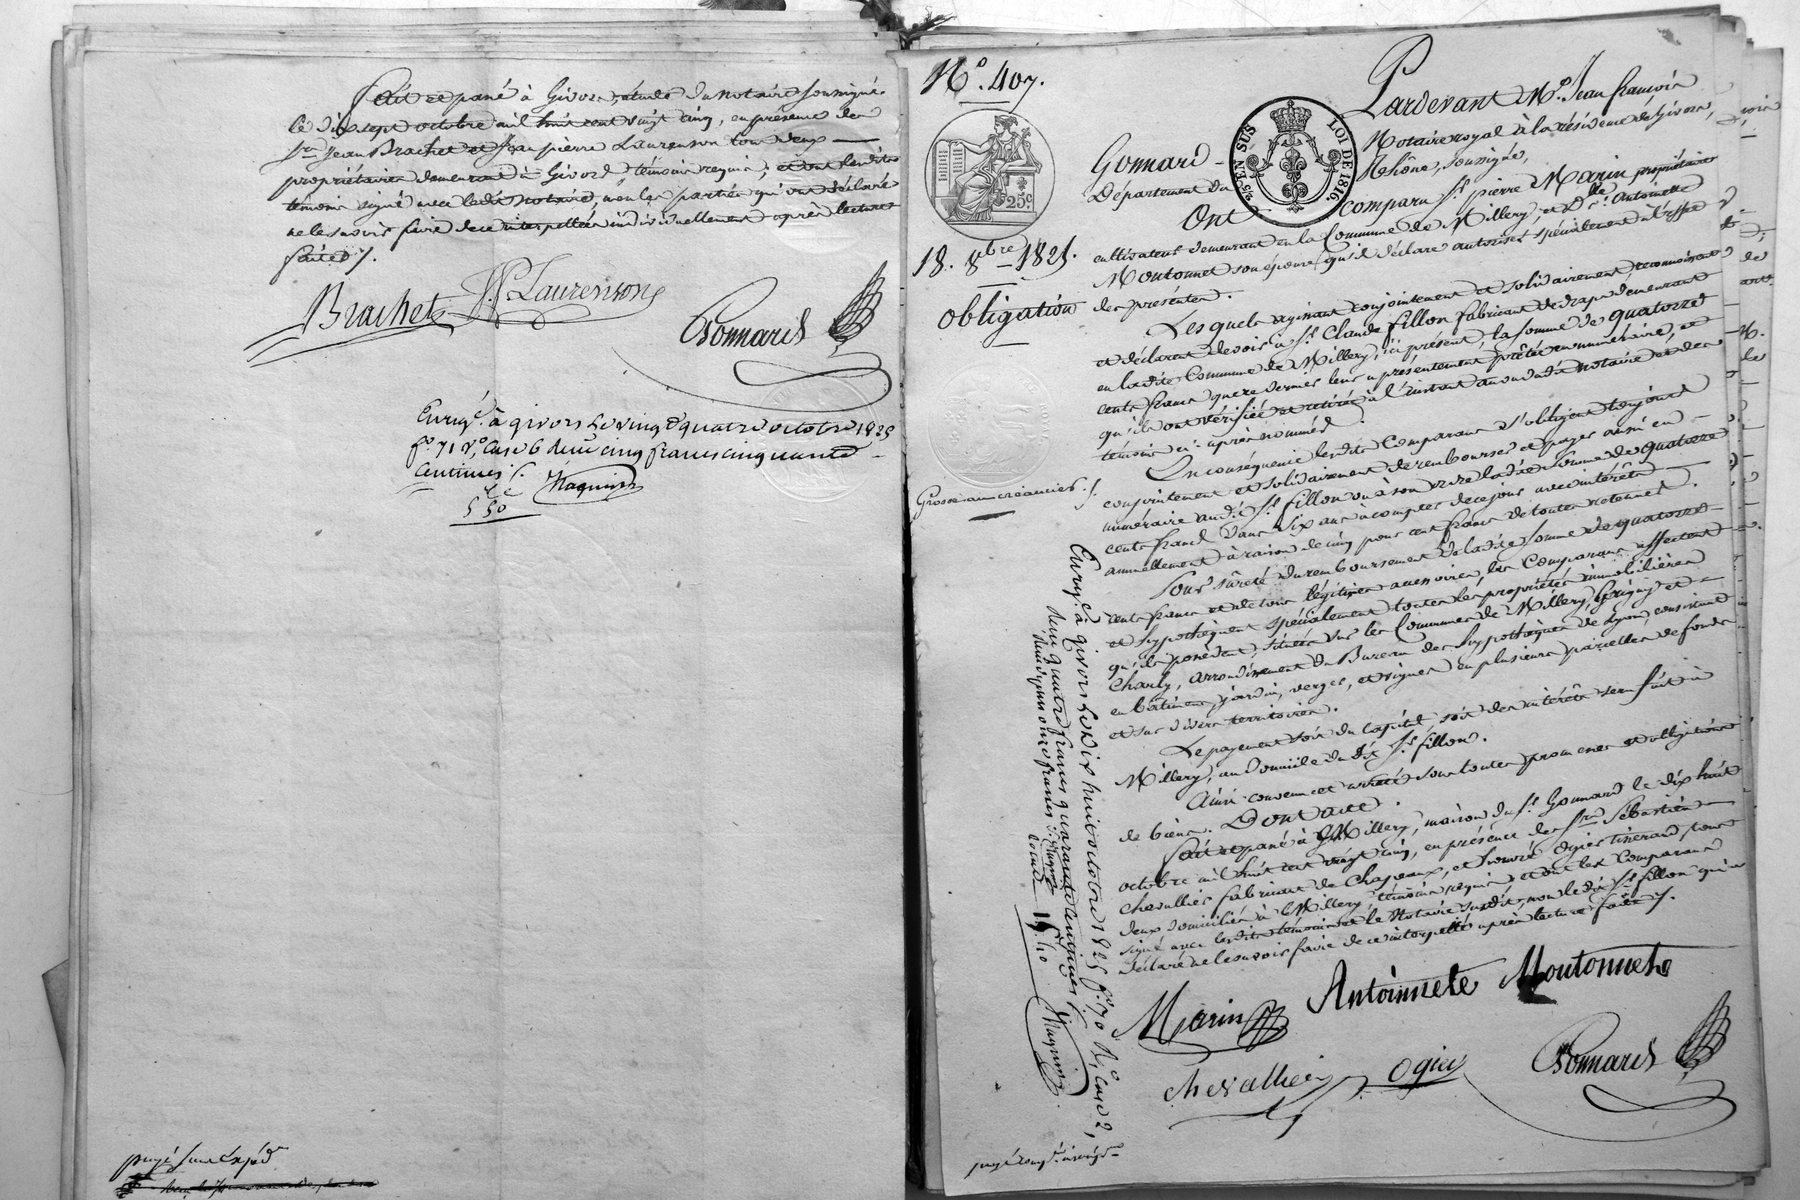 Fait et passé à Givors, étude du notaire soussigné
le dix sept octobre mil huit cent vingt cinq, en présence des
Srs Jean Brachet et Jean pierre Laurenson tous deux
propriétaires demeurant à Givors, témoins requis, et ont lesdits
témoins signé avec ledit notaire, non les parties qui ont déclaré
ne le savoir faire de ce interpellées individuellement après lecture
faite.
Brachet J. P. Laurenson
Gonnard
Enrgé. à givors le vingt quatre octobre 1825
fo. 71 Vo. Case 6 reçu cinq francs cinquante
centimes
5 50
Magnin
payé
No. 407.
25c.
18. 8bre 1825.
Obligation
Grosse au créancier.
25c EN SUS LOI DE 1816.
Pardevant Me. Jean françois
Gonnard Notaire royal à la résidence de Givors,
Département du Rhône, soussigné,
Ont comparu Sr. pierre Marin propriétaire
cultivateur demeurant en la Commune de Millery, et Dlle. Antoinette
Moutonnet son épouse qu'il déclare autoriser spécialement à l'effet
des présentes.
Lesquels agissant conjointement et solidairement reconnoissent
et déclarent devoir à Sr. Claude fillon fabricant de draps demeurant
en ladite Commune de Millery, ici présent, la somme de quatorze
cents francs que ce dernier leur a présentement prêtée en numéraire, et
qu'ils ont vérifiée et retirée à l'instant au vu dudit notaire et des
témoins ci après nommés.
En conséquence lesdits Comparans s'obligent toujours
conjointement et solidairement de rembourser et payer aussi en
numéraire audit Sr. fillon ou à son ordre ladite somme de quatorze
cents francs dans six ans à compter de ce jour avec intérêts
annuellement à raison de cinq pour cent francs de toutes retenues.
Pour sûreté du remboursement de ladite somme de quatorze
cents francs et de tous légitimes accessoires, les Comparans affectent
et hypothèquent spécialement toutes les propriétés immobilières
qu'ils possèdent, situées sur les Communes de Millery, Grigny et
Charly, arrondissement du Bureau des hypothèques de Lyon, consistant
en bâtimens, jardin, verger, et vignes en plusieurs parcelles de fonds
et sur divers territoires.
Le payement soit du Capital, soit des intérêts sera fait à
Millery, au Domicile dudit Sr. fillon.
Ainsi convenu et arrêté sous toutes promesses et obligations
de biens. Dont acte.
Fait et passé à Millery, maison du Sr. Gonnard le dix huit
octobre mil huit cent vingt cinq, en présence des Srs Sébastien
Chevallier fabricant de Chapeaux, et Ogier tisserand tous
deux domiciliés à Millery, témoins requis et ont les Comparans
signé avec lesdits témoins et le Notaire susdit, non ledit Sr. fillon qui a
déclaré ne le savoir faire de ce interpellé après lecture faite.
Marin Antoinnete Moutonnet
chevallier ogier Gonnard
Enrgé. à givors le dix huit octobre 1825 fo. 70 Vo. Case 2,
reçu quatorze francs quarante centimes
Magnin